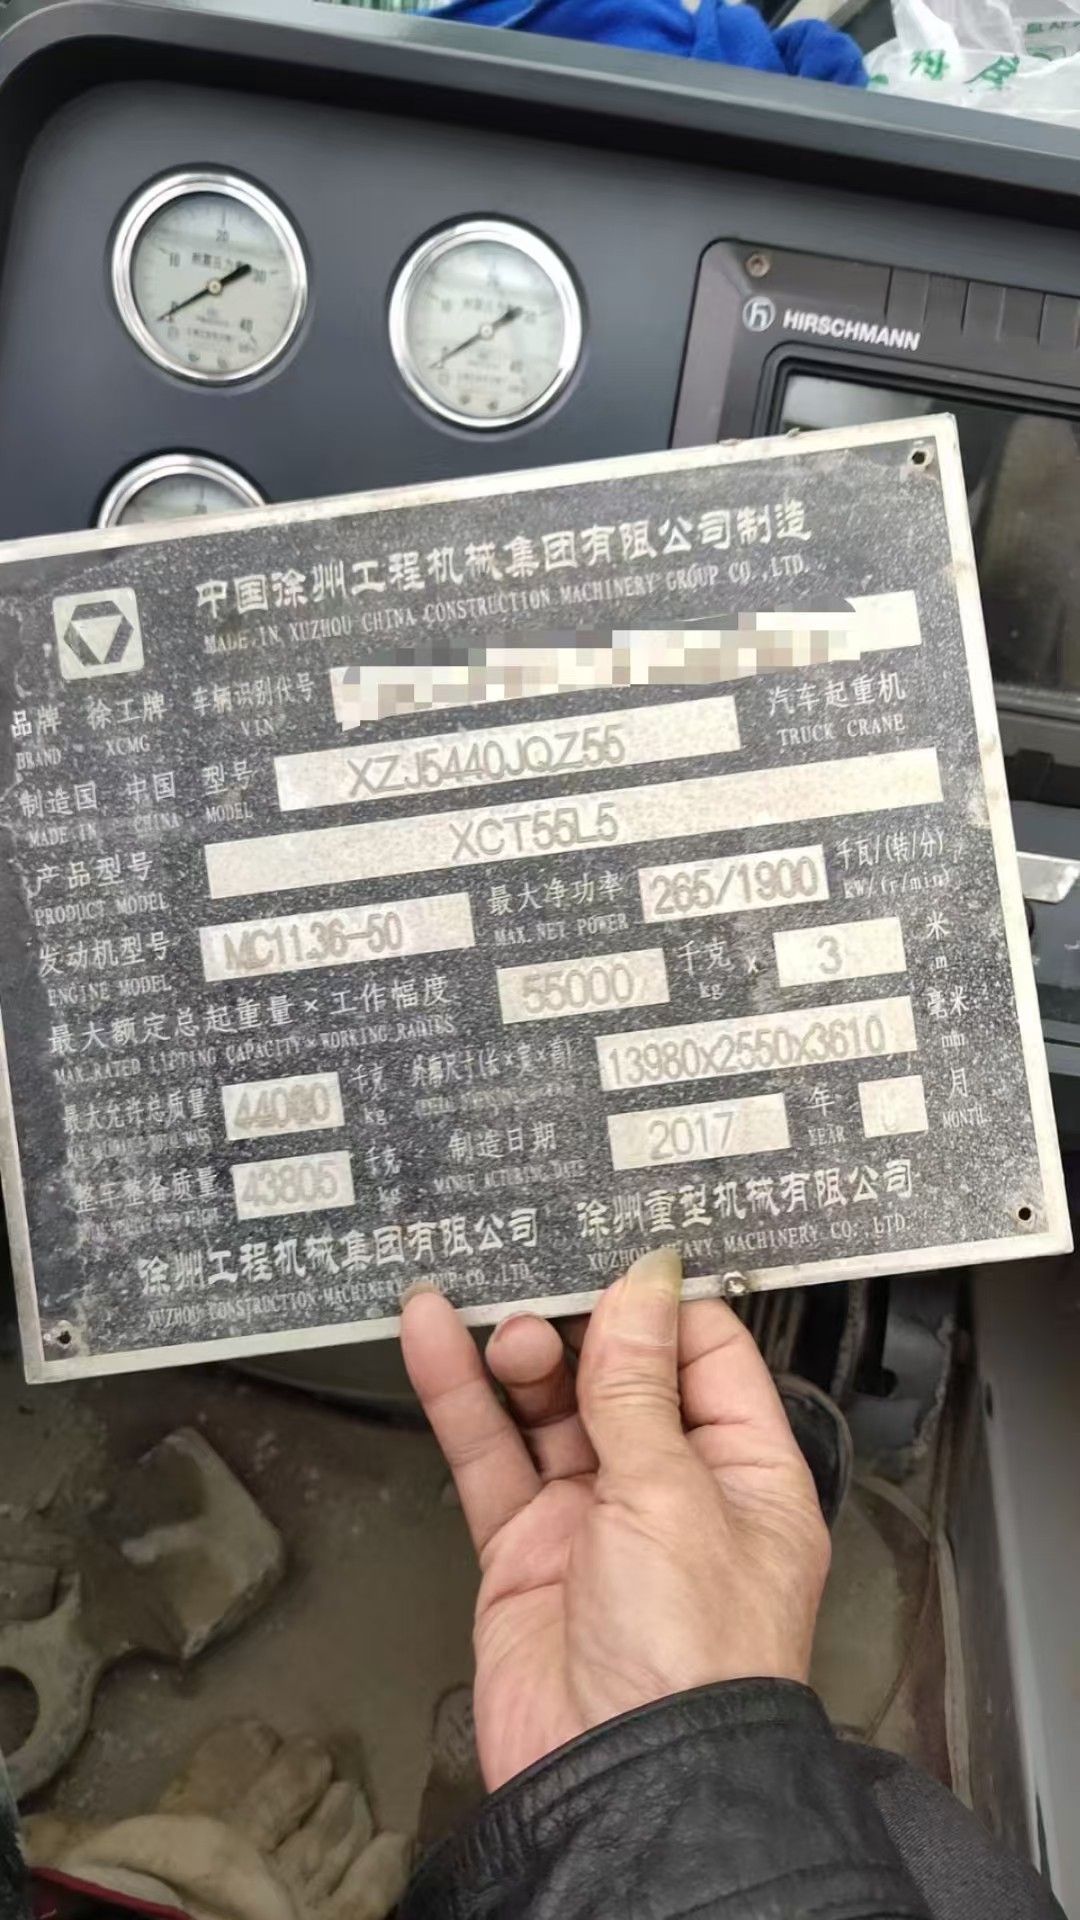 20
10
30
耐震压力表
0
40
10
0
40
HIRSCHMANN
中国徐州工程机械集团有限公司制造
MADE IN XUZHOU CHINA CONSTRUCTION MACHINERY GROUP CO.,LTD.
品牌 徐工牌 车辆识别代号
BRAND XCMG VIN
制造国 中国 型号 XZJ5440JQZ55 汽车起重机
MADE IN CHINA MODEL TRUCK CRANE
产品型号 XCT55L5
PRODUCT MODEL
发动机型号 MC11.36-50 最大净功率 265/1900 千瓦/(转/分)
ENGINE MODEL MAX.NET POWER kW/(r/min)
最大额定总起重量×工作幅度 55000 千克 x 3 米
MAX.RATED LIFTING CAPACITY×WORKING RADIUS kg m
最大允许总质量 千克 外廓尺寸(长×宽×高) 13980x2550x3610 毫米
kg mm
整车整备质量 43805 千克 制造日期 2017 年 月
kg MANUFACTURING DATE YEAR MONTH
徐州工程机械集团有限公司 徐州重型机械有限公司
XUZHOU CONSTRUCTION MACHINERY GROUP CO.,LTD. XUZHOU HEAVY MACHINERY CO.,LTD.